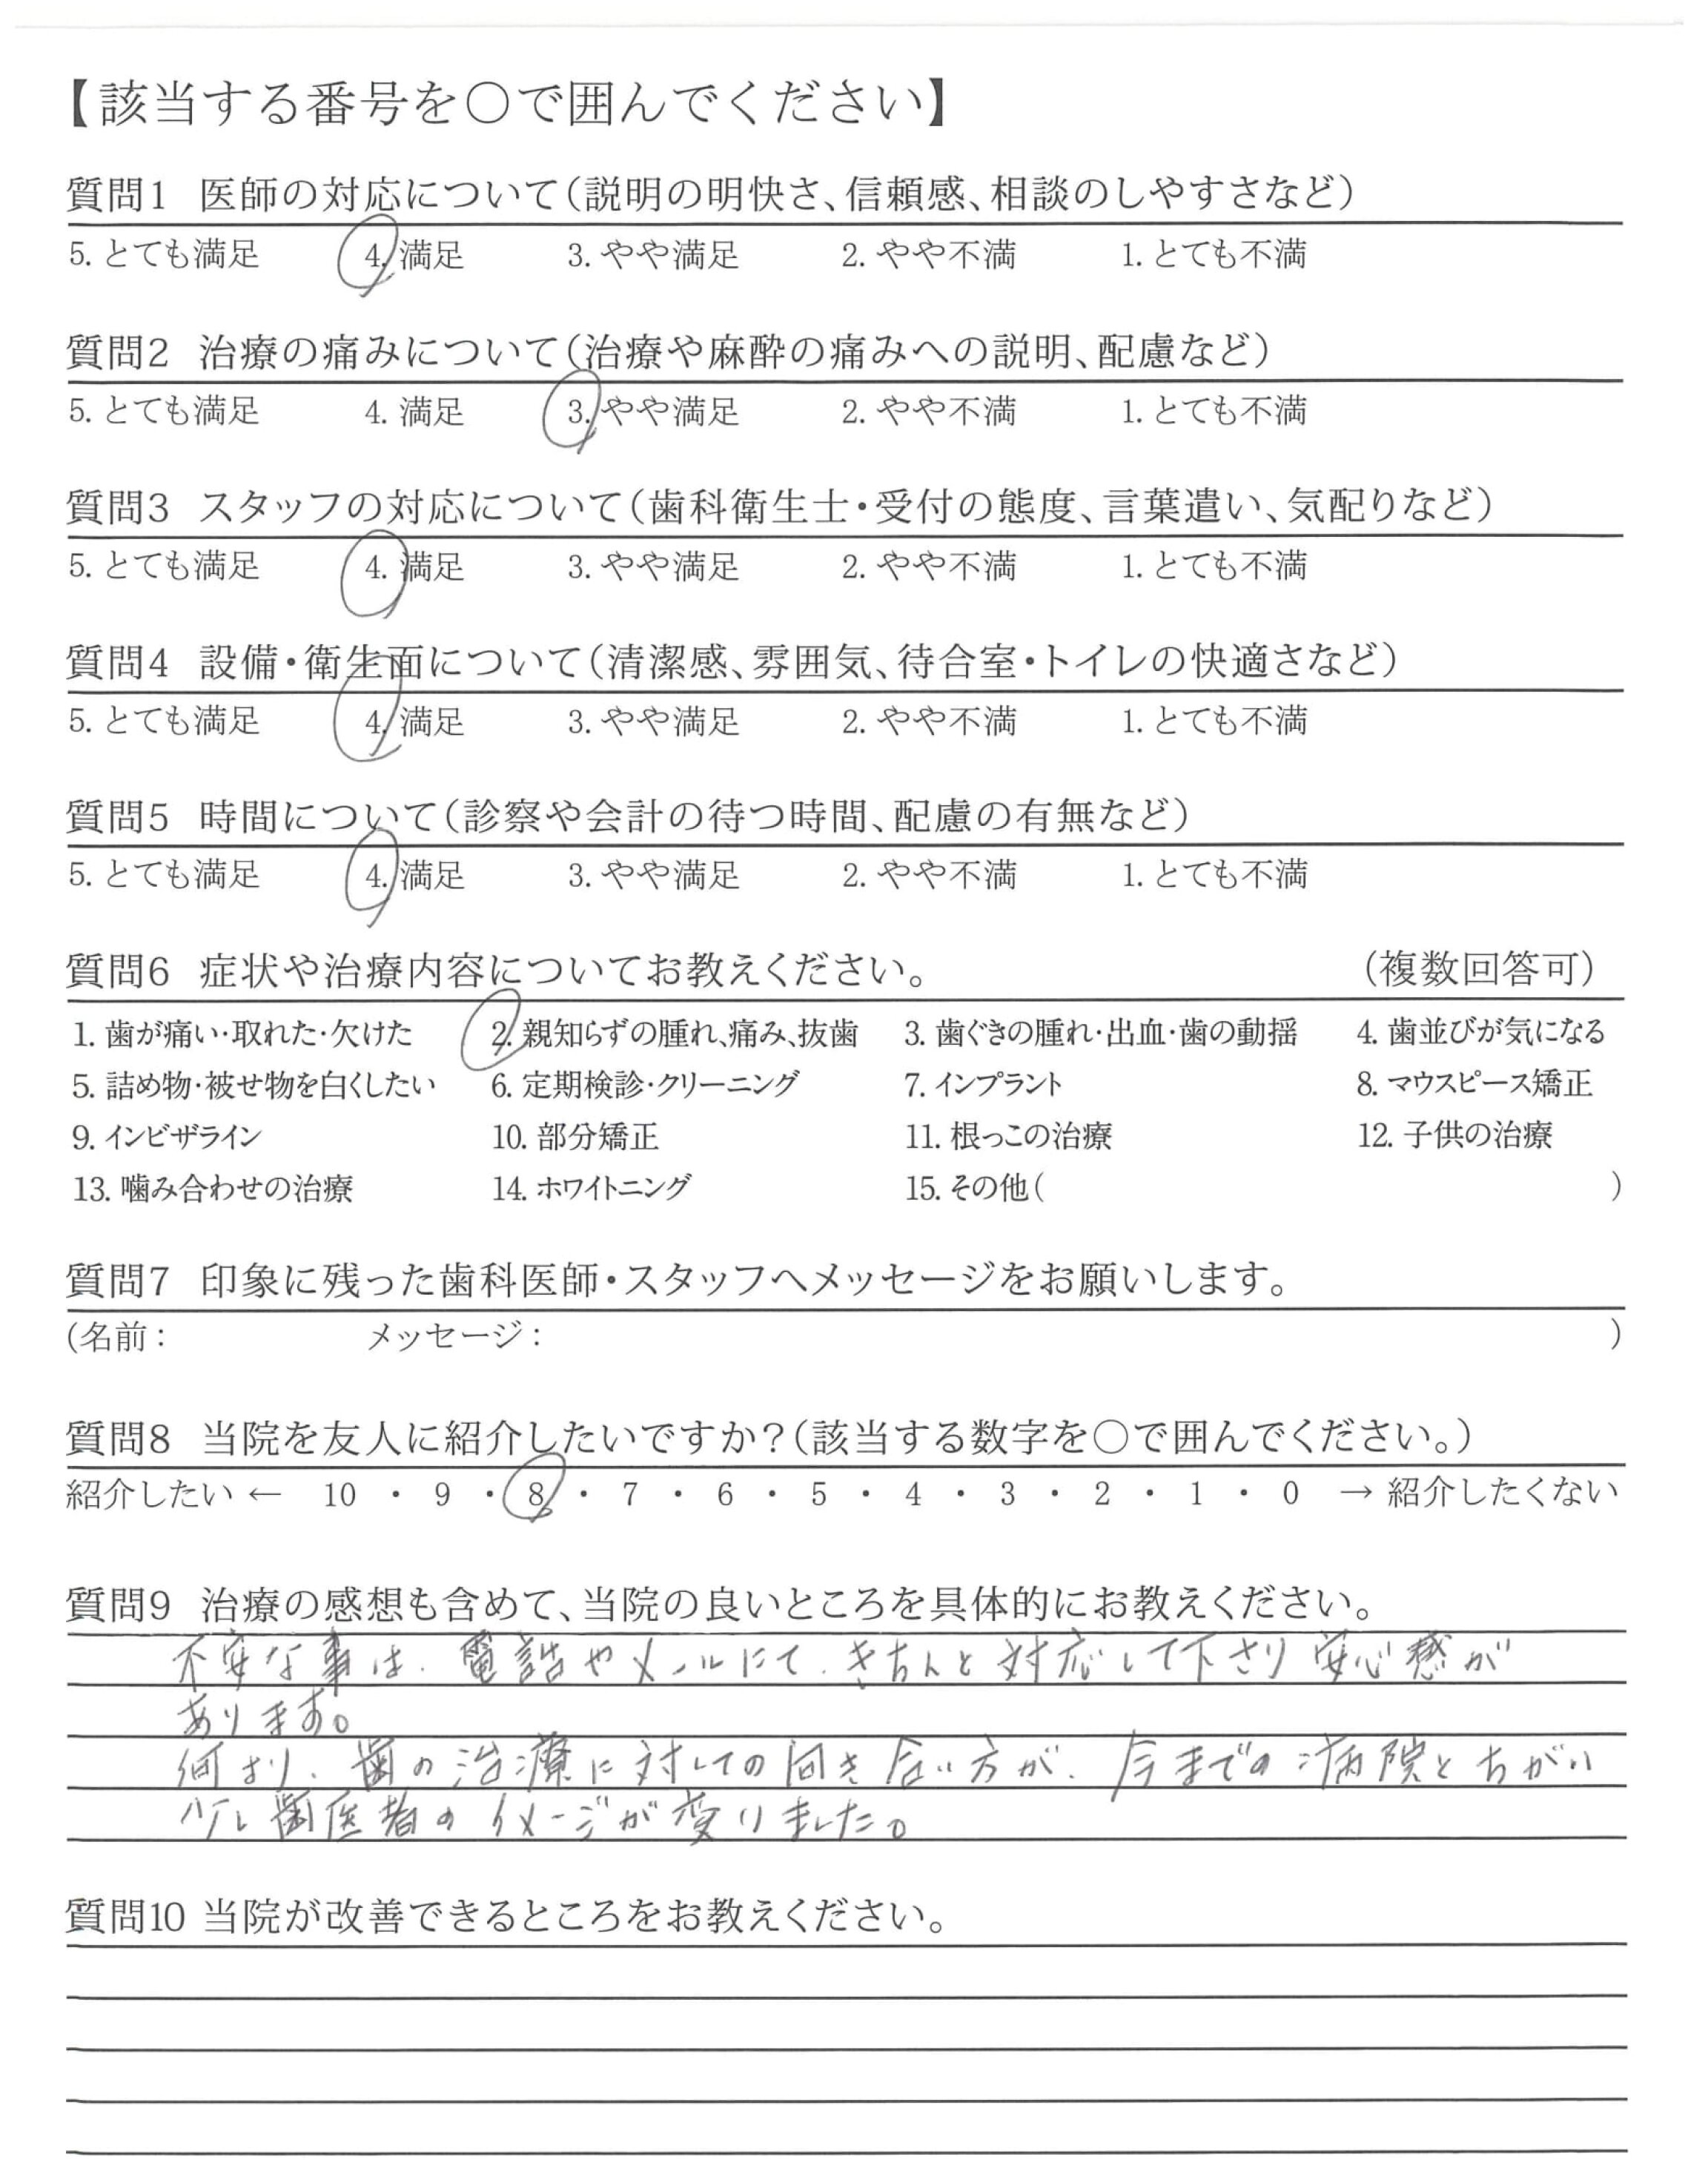 【該当する番号を○で囲んでください】
質問1 医師の対応について（説明の明快さ、信頼感、相談のしやすさなど）
5. とても満足 4. 満足 3. やや満足 2. やや不満 1. とても不満
質問2 治療の痛みについて（治療や麻酔の痛みへの説明、配慮など）
5. とても満足 4. 満足 3. やや満足 2. やや不満 1. とても不満
質問3 スタッフの対応について（歯科衛生士・受付の態度、言葉遣い、気配りなど）
5. とても満足 4. 満足 3. やや満足 2. やや不満 1. とても不満
質問4 設備・衛生面について（清潔感、雰囲気、待合室・トイレの快適さなど）
5. とても満足 4. 満足 3. やや満足 2. やや不満 1. とても不満
質問5 時間について（診察や会計の待つ時間、配慮の有無など）
5. とても満足 4. 満足 3. やや満足 2. やや不満 1. とても不満
質問6 症状や治療内容についてお教えください。 （複数回答可）
1. 歯が痛い・取れた・欠けた 2. 親知らずの腫れ、痛み、抜歯 3. 歯ぐきの腫れ・出血・歯の動揺 4. 歯並びが気になる
5. 詰め物・被せ物を白くしたい 6. 定期検診・クリーニング 7. インプラント 8. マウスピース矯正
9. インビザライン 10. 部分矯正 11. 根っこの治療 12. 子供の治療
13. 噛み合わせの治療 14. ホワイトニング 15. その他（ ）
質問7 印象に残った歯科医師・スタッフへメッセージをお願いします。
（名前： メッセージ： ）
質問8 当院を友人に紹介したいですか？（該当する数字を○で囲んでください。）
紹介したい ← 10 ・ 9 ・ 8 ・ 7 ・ 6 ・ 5 ・ 4 ・ 3 ・ 2 ・ 1 ・ 0 → 紹介したくない
質問9 治療の感想も含めて、当院の良いところを具体的にお教えください。
不安な事は、電話やメールにて、きちんと対応して下さり安心感が
あります。
何より、歯の治療に対しての向き合い方が、今までの病院とちがい
少し歯医者のイメージが変りました。
質問10 当院が改善できるところをお教えください。